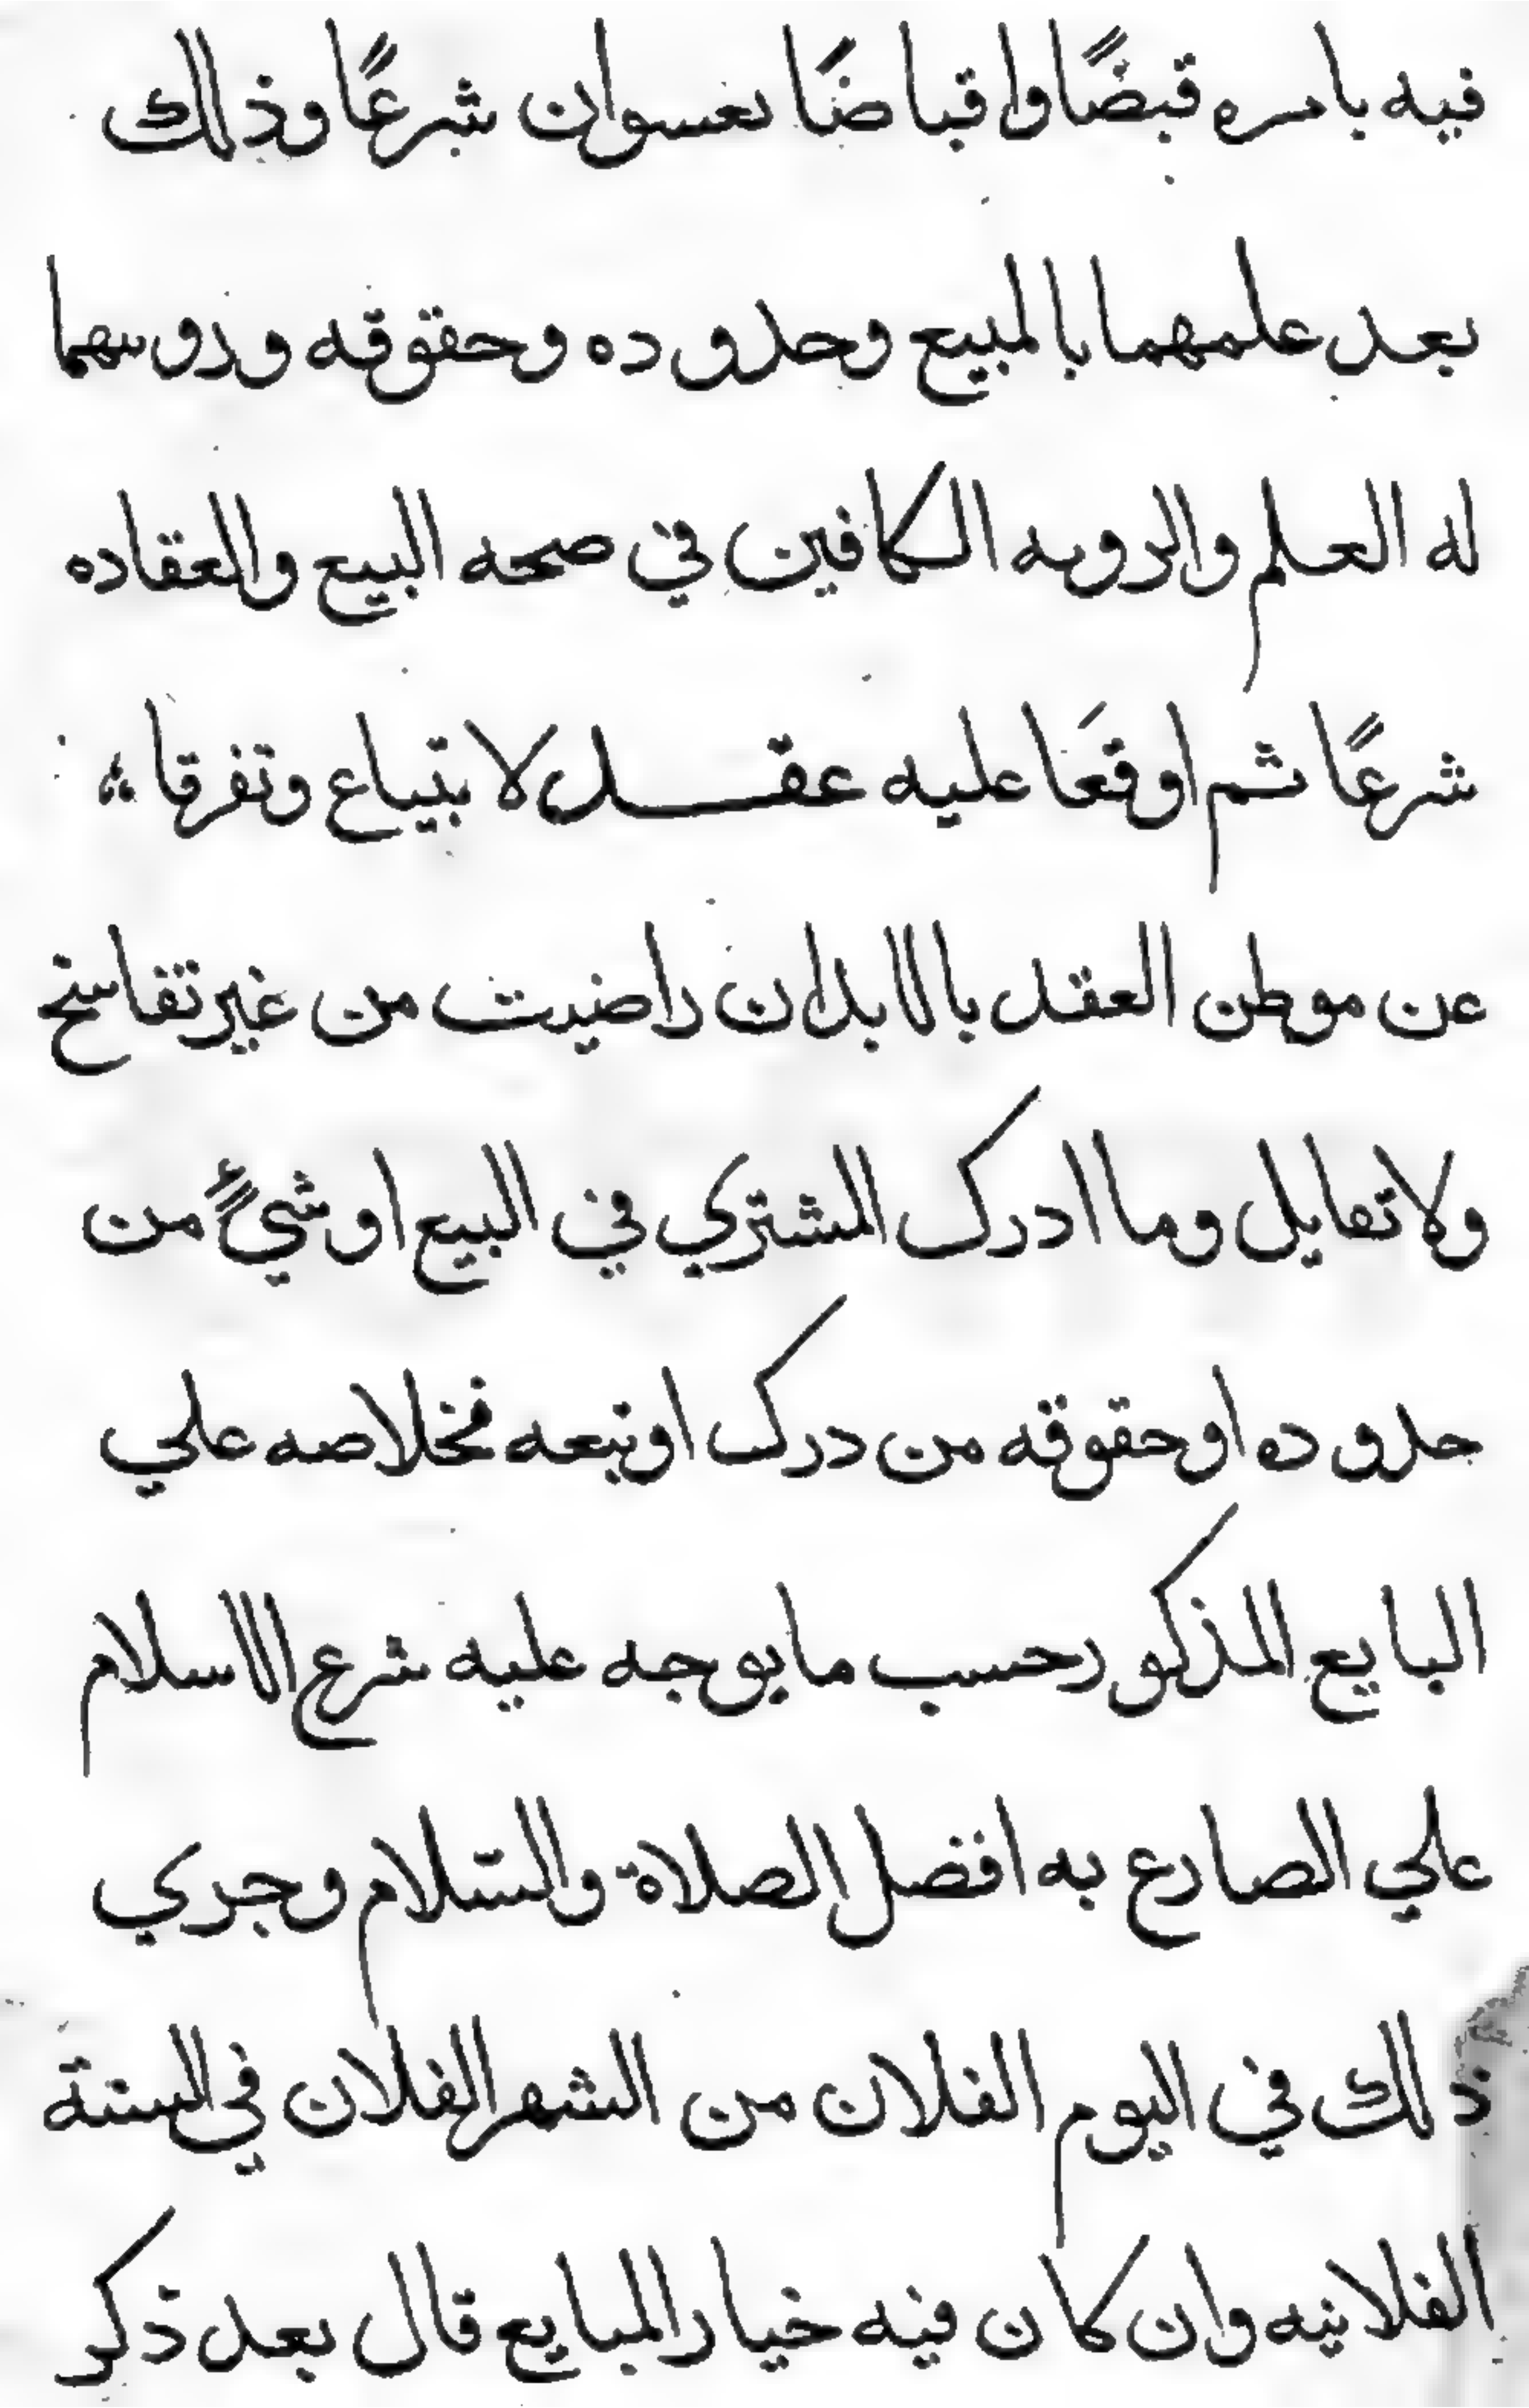 فيه بامره قبضًا واقباضًا معتبران شرعًا وذلك
بعد علمهما بالمبيع وحدوده وحقوقه ورويتهما
له العلم والرويه الكافين في صحه البيع والعقاده
شرعًا ثم اوقعَا عليه عقد لابتياع وتفرقا
عن موطن العقد بالابدان راضيت من غير تفاسخ
ولا تقايل وما ادرك المشتري في البيع او شيءٍ من
حدوده او حقوقه من درك او تبعه فخلاصه علي
البايع المذكور حسب ما يوجه عليه شرع الاسلام
علي الصارع به افضل الصلاة والسّلام وجري
ذلك في اليوم الفلان من الشهر الفلان في السنة
الفلانيه وان كان فيه خيار المبايع قال بعد ذكر